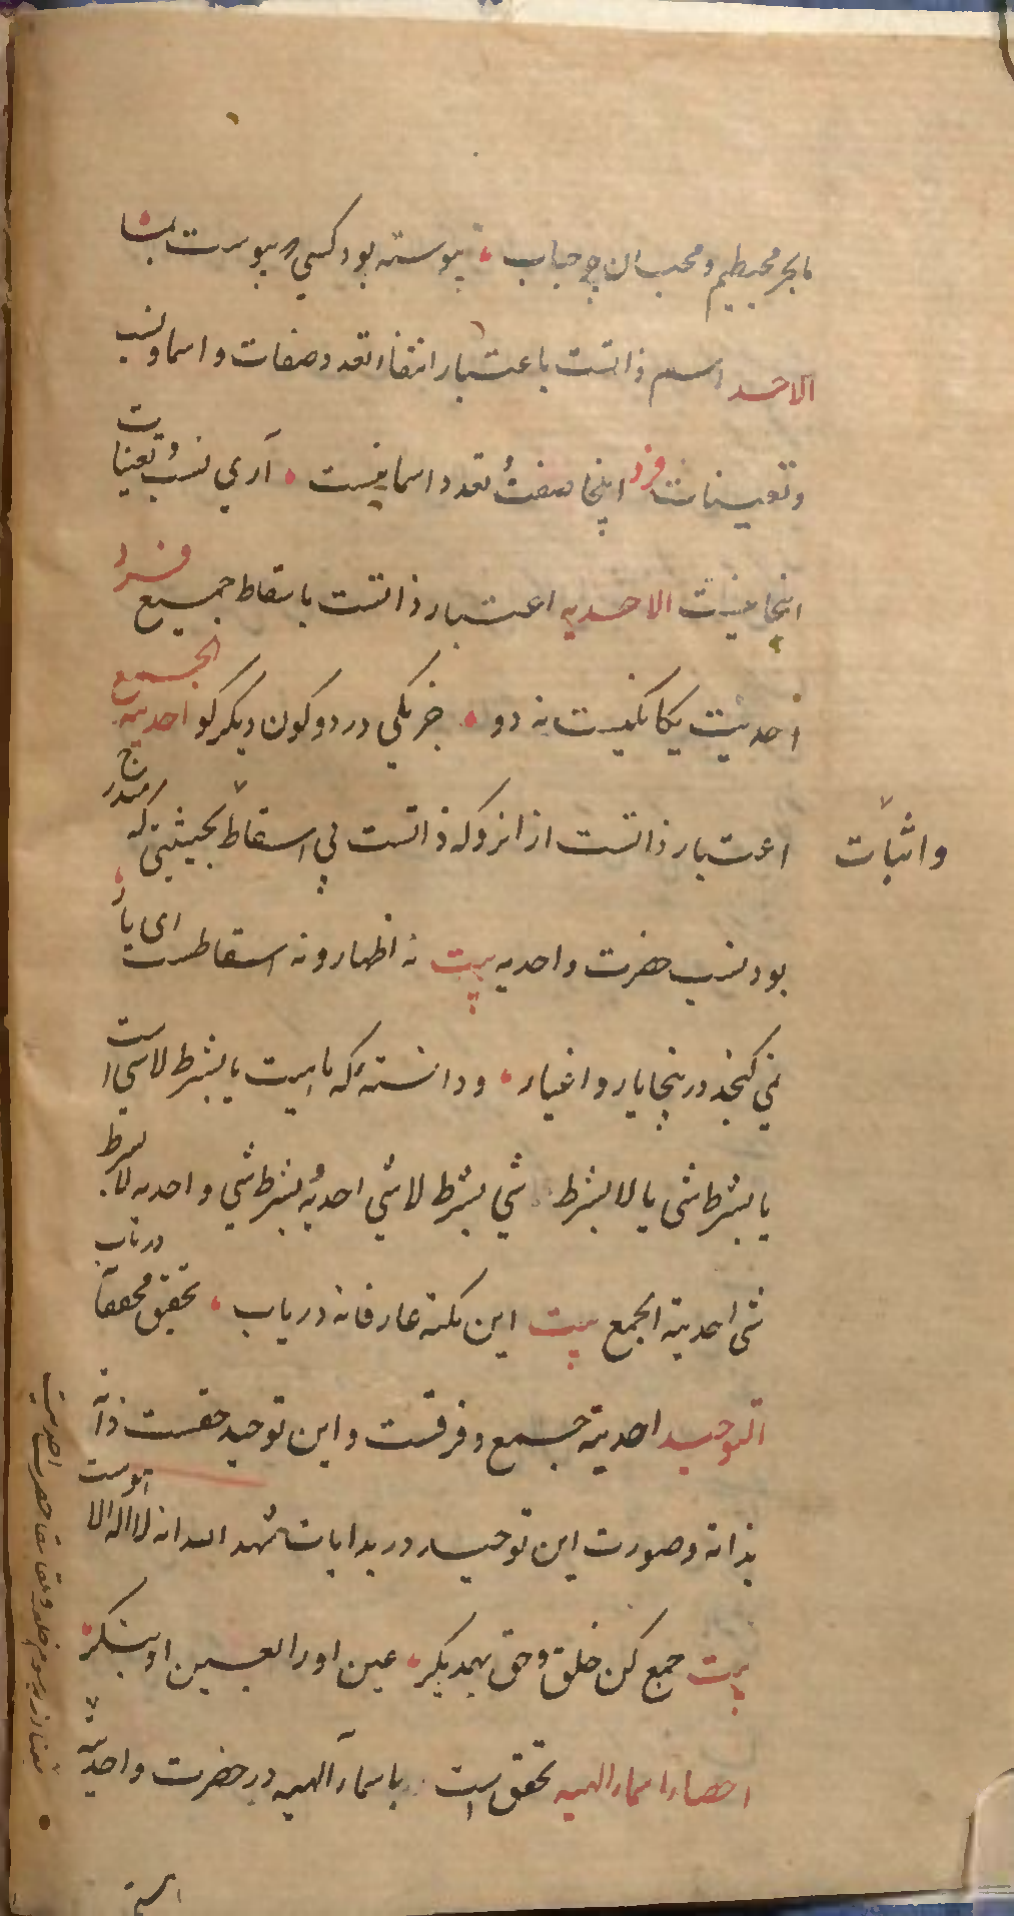 ما بحر محیطیم و محب ان چو حباب پیوسته بود کسی که پیوست بما
الاحد اسم ذاتست باعتبار انتفاء تعدد صفات و اسما و نسب
و تعینات فرد اینجا صفت تعدد اسما نیست آری نسب و تعینات
اینجا نیست الاحدیه اعتبار ذاتست باسقاط جمیع فرد
احدیت یکانکیست نه دو جز یکی در دو کون دیکر کو احدیة الجمع
اعتبار ذاتست از انرو که ذاتست بی اسقاط بحیثیتی که مندرج
و اثبات
بود نسب حضرت واحدیه بیت نه اظهار و نه اسقاطست ای یار
نمی کنجد درینجا یار و اغیار و دانسته که ماهیت یا بشرط لا شی است
یا بشرط شی یا لا بشرط شی بشرط لا شی احدیه بشرط شی واحدیه لا بشرط
شی احدیة الجمع بیت این نکته عارفانه دریاب تحقیق محققا دریاب
التوحید احدیة جمع و فرقست و این توحید حقست ذاته
بذاته و صورت این توحید در بدایات شهد الله انه لا اله الا هوست
بیت جمع کن خلق و حق بهمدیکر عین او را بعین او بنکر
احصاء اسماء الهیه تحقق است باسماء الهیه در حضرت واحدیه